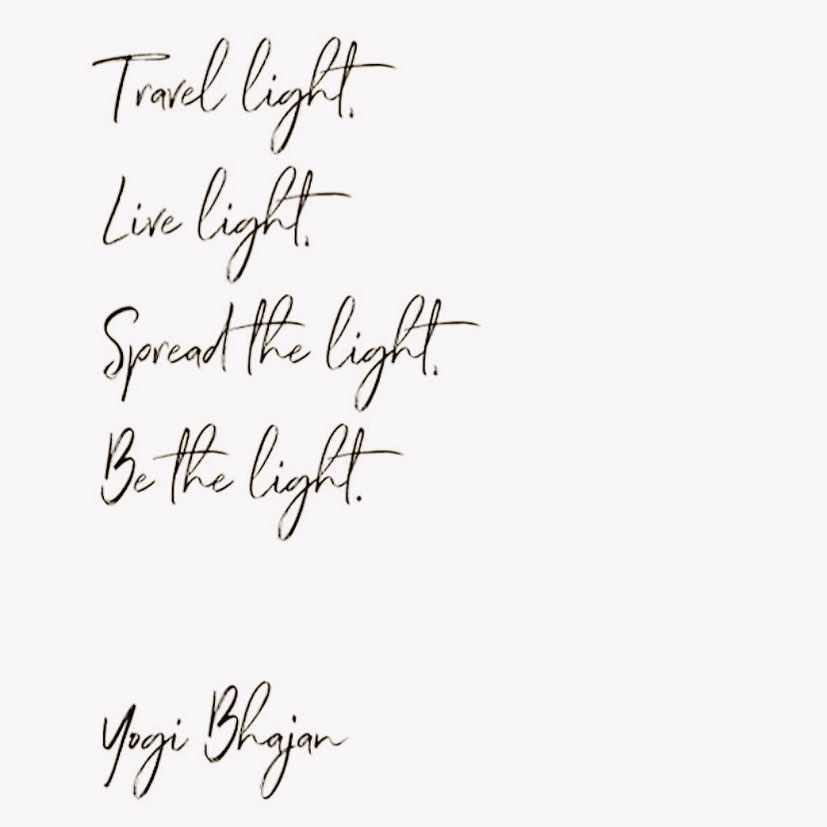 Travel light.
Live light.
Spread the light.
Be the light.
Yogi Bhajan